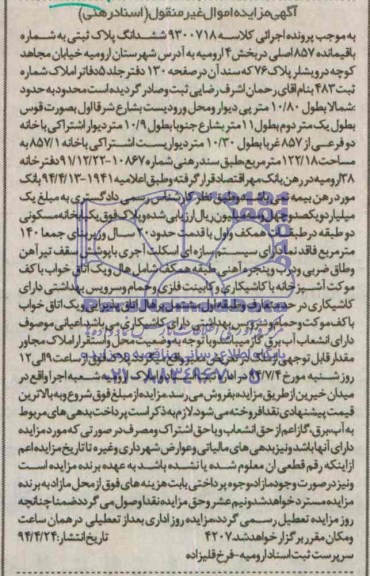 آگهی مزایده اموال غیر منقول (اسناد رهنی)
به موجب پرونده اجرائی کلاسه ۹۳۰۰۷۱۸ ششدانگ پلاک ثبتی به شماره
باقیمانده ۸۵۷ اصلی در بخش ۴ ارومیه به آدرس شهرستان ارومیه خیابان مجاهد
کوچه درویشلر پلاک ۷۶ که سند آن در صفحه ۱۳۰ دفتر جلد ۵ دفاتر املاک شماره
ثبت ۴۸۳ بنام آقای رحمان اشرف رضایی ثبت و صادر گردیده است محدود به حدود
:شمالا بطول ۱۰/۸۰ متر پی دیوار و محل ورودیست بشارع شرقا اول بصورت قوس
بطول یک متر دوم بطول ۱۱ متر بشارع جنوبا بطول ۱۰/۹ متر دیوار اشتراکی با خانه
دو فرعی از ۸۵۷ غربا بطول ۱۰/۳۰ متر دیواریست اشتراکی به خانه ۸۵۷/۱ به
مساحت ۱۲۲/۱۸ مترمربع طبق سند رهنی شماره ۱۰۸۶۷-۹۱/۱۲/۲۳ دفترخانه
۳۸ ارومیه در رهن بانک مهر اقتصاد قرار گرفته و طبق اعلامیه ۱۹۴۱-۹۴/۴/۱۳ بانک
مورد رهن بیمه نمی باشد و طبق نظر کارشناس رسمی دادگستری به مبلغ یک
میلیارد و یکصد و چهل میلیون ریال ارزیابی شده و پلاک فوق یکبابخانه مسکونی
دو طبقه در طبقات همکف و اول با قدمت حدود ۲۰ سال و زیربنای جمعا ۱۴۰
مترمربع فاقد نما دارای سیستم سازه ای اسکلت آجری با پوشش سقف تیرآهن
وطاق ضربی و درب و پنجره آهنی طبقه همکف شامل هال و یک اتاق خواب با کف
موکت آشپزخانه با کاشیکاری و کابینت فلزی و حمام و سرویس بهداشتی دارای
کاشیکاری در حد متعارف و طبقه اول مشتمل بر هال اتاق پذیرایی و یک اتاق خواب
با کف موکت و حمام و سرویس بهداشتی دارای کاشیکاری می باشد اعیانی موصوف
دارای انشعاب آب برق گاز میباشد و با توجه به وضعیت محل و استقرار املاک مجاور
مقدار قابل توجهی از ملک در تعریض واقع میگردد پلاک فوق از ساعت ۹ الی ۱۲
روز شنبه مورخ ۹۴/۷/۴ در اداره ثبت اسناد و املاک ارومیه شعبه اجرا واقع در
میدان خیرین از طریق مزایده بفروش می رسد مزایده از مبلغ فوق شروع و به بالاترین
قیمت پیشنهادی نقدا فروخته می شود لازم به ذکر است پرداخت بدهی های مربوط
به آب، برق، گاز اعم از حق انشعاب و یا حق اشتراک و مصرف در صورتی که مورد مزایده
دارای آنها باشد و نیز بدهی های مالیاتی و عوارض شهرداری و غیره تا تاریخ مزایده اعم
از اینکه رقم قطعی ان معلوم شده یا نشده باشد به عهده برنده مزایده است
و نیز در صورت وجود مازاد وجوه پرداختی بابت هزینه های فوق از محل مازاد به برنده
مزایده مسترد خواهد شد و نیم عشر و حق مزایده نقدا وصول می گردد ضمنا چنانچه
روز مزایده تعطیل رسمی گردد مزایده روز اداری بعد از تعطیلی در همان ساعت
و مکان مقرر برگزار خواهد شد ۴۲۰۷ تاریخ انتشار: ۹۴/۴/۲۴
سرپرست ثبت اسناد ارومیه - فرخ قلیزاده